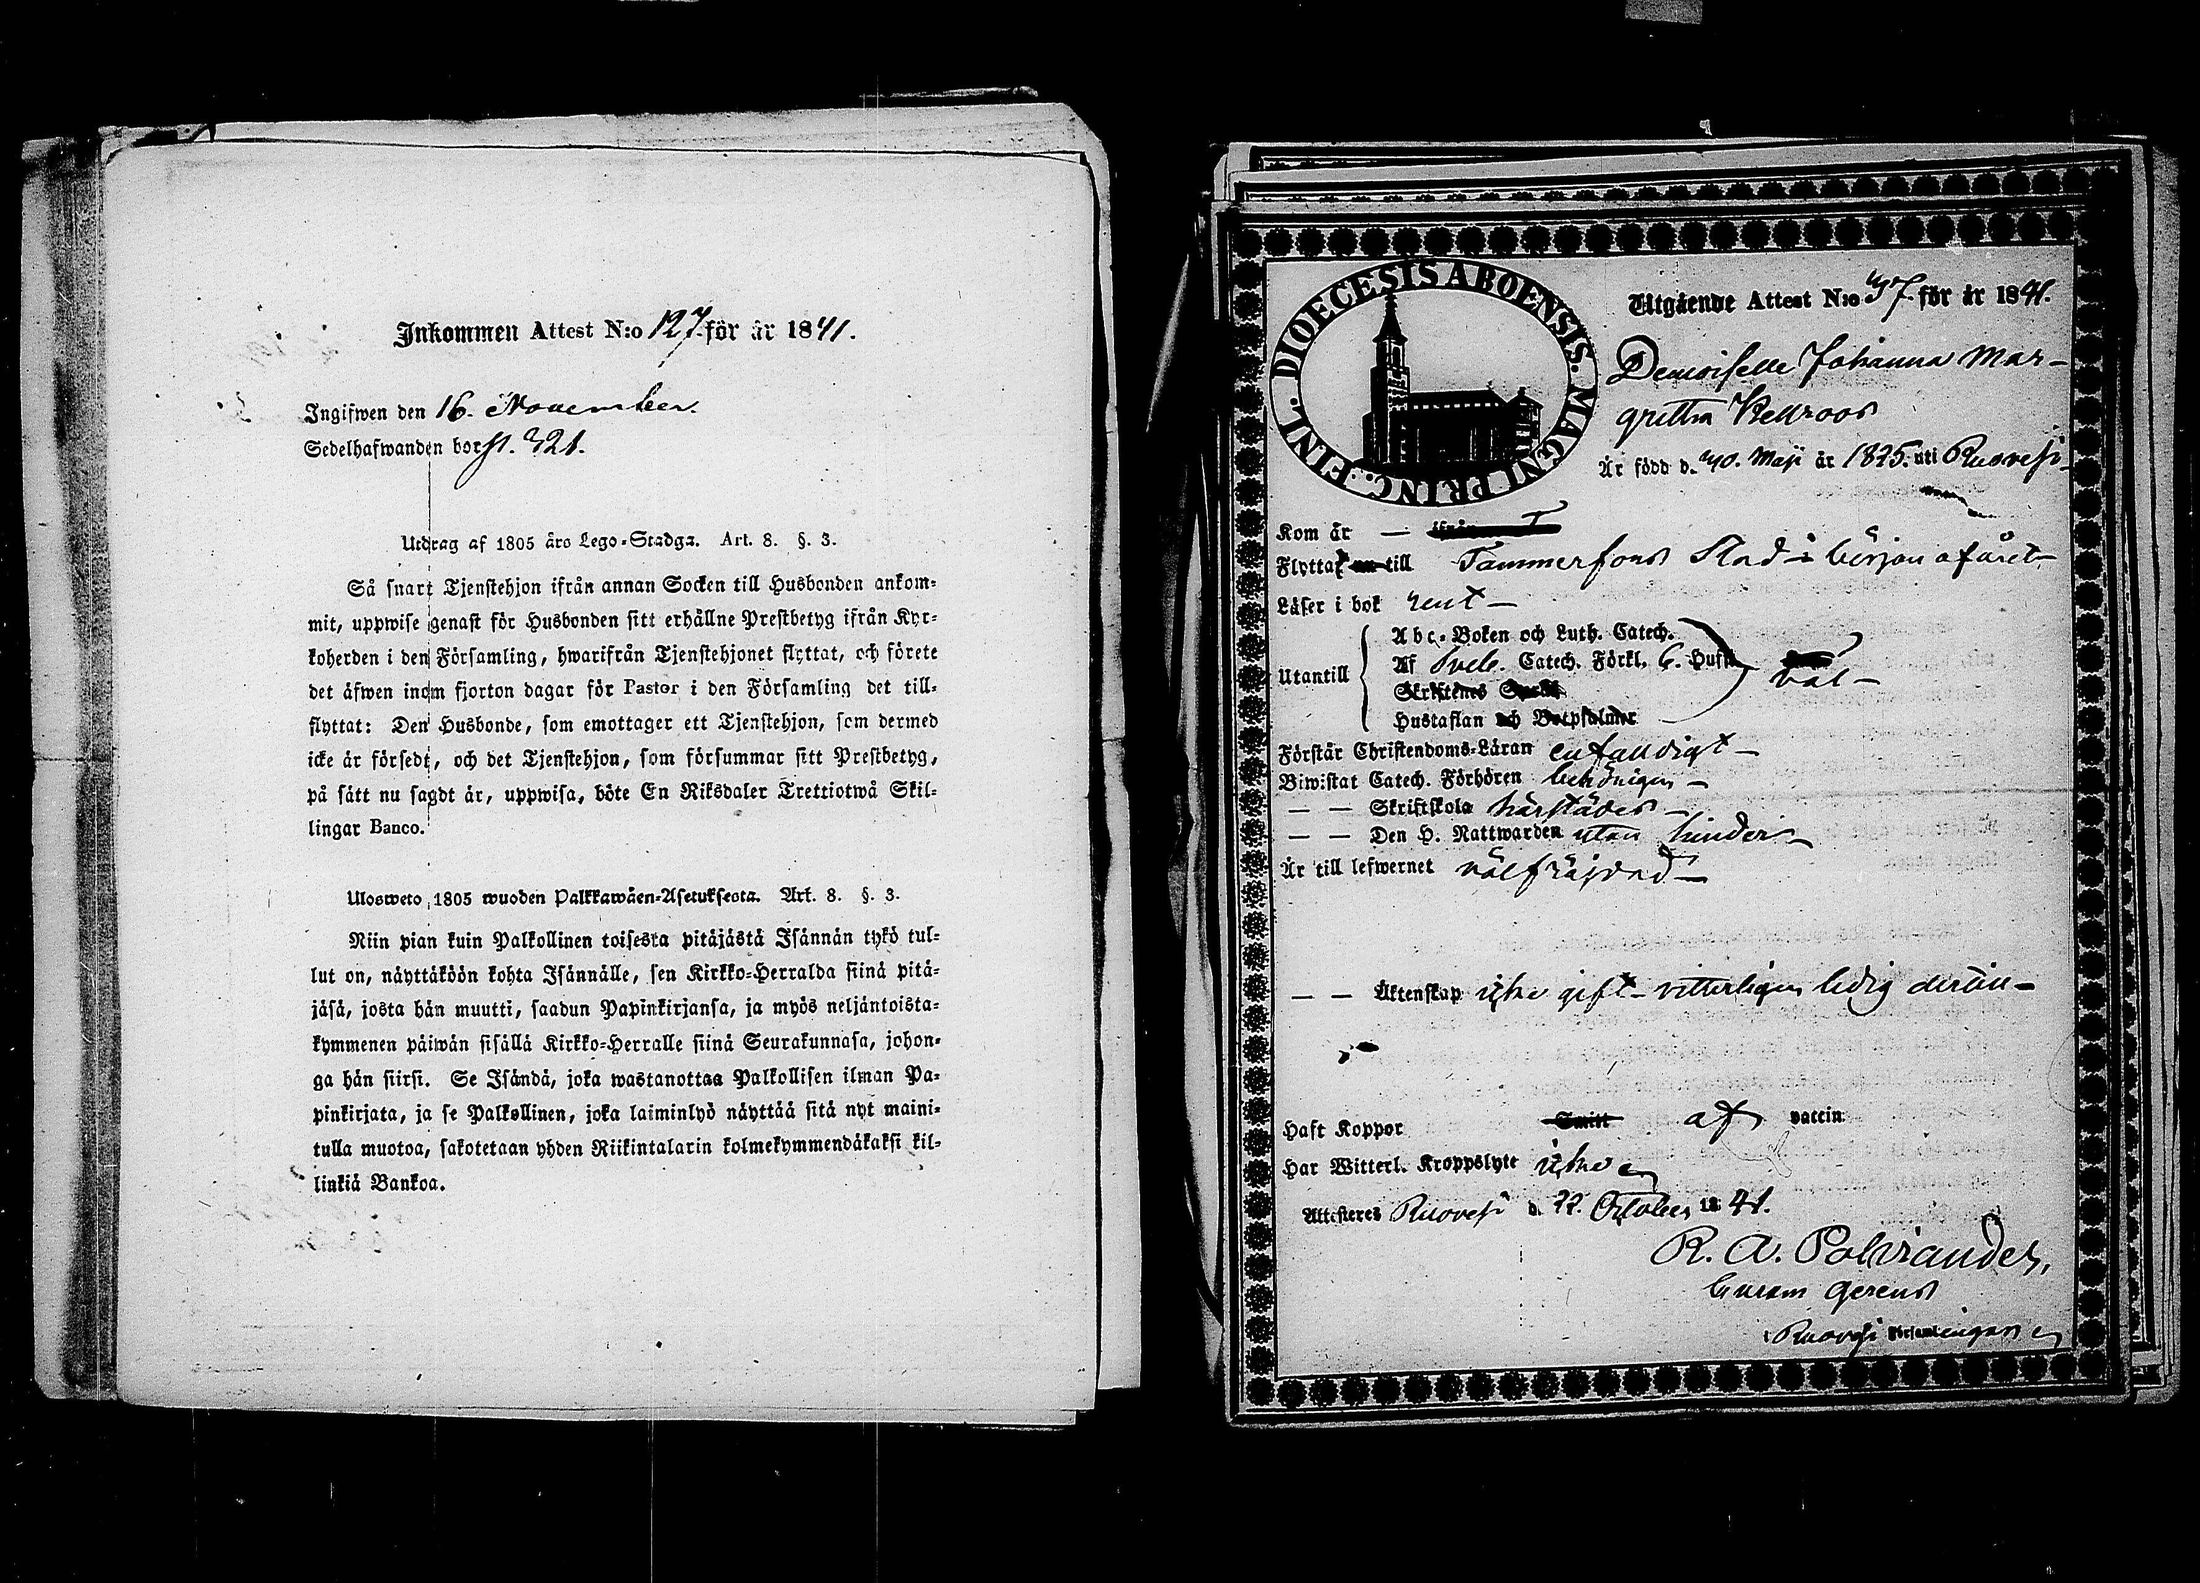 Inkommen Attest N:o 127 för år 1841.
Ingifwen den 16. November.
Sedelhafwanden bor st. 321.
Utdrag af 1805 års Lego-Stadga. Art. 8. §. 3.
Så snart Tjenstehjon ifrån annan Socken till Husbonden ankom-
mit, uppwise genast för Husbonden sitt erhållne Prestbetyg ifrån Kyr-
koherden i den Församling, hwarifrån Tjenstehjonet flyttat, och förete
det äfwen inom fjorton dagar för Pastor i den Församling det till-
flyttat: Den Husbonde, som emottager ett Tjenstehjon, som dermed
icke är försedt, och det Tjenstehjon, som försummar sitt Prestbetyg,
på sätt nu sagdt är, uppwisa, böte En Riksdaler Trettiotwå Skil-
lingar Banco.
Ulosweto 1805 wuoden Palkkawäen-Asetuksesta. Art. 8. §. 3.
Niin pian kuin Palkollinen toisesta pitäjästä Isännän tykö tul-
lut on, näyttäköön kohta Isännälle, sen Kirkko-Herralda siinä pitä-
jäsä, josta hän muutti, saadun Papinkirjansa, ja myös neljäntoista-
kymmenen päiwän sisällä Kirkko-Herralle siinä Seurakunnasa, johon-
ga hän siirsi. Se Isändä, joka wastanottaa Palkollisen ilman Pa-
pinkirjata, ja se Palkollinen, joka laiminlyö näyttää sitä nyt maini-
tulla muotoa, sakotetaan yhden Riikintalarin kolmekymmendäkaksi kil-
linkiä Bankoa.
DIOECESIS ABOENSIS. MAGNI PRINC. FINL.
Utgående Attest N:o 37 för år 1841.
Demoiselle Johanna Mar-
gretha Kellroos
Är född d. 30. Maji år 1825. uti Ruovesi
Kom år — ifrån
Flyttar nu till Tammerfors Stad i början af året
Läser i bok rent —
Utantill
Abc-Boken och Luth. Catech.
Af Sveb. Catech. Förkl. 6. Hufst.
Skriftenes Språk
Hustaflan och Botpsalmer
väl —
Förstår Christendoms-Läran enfaldigt —
Biwistat Catech. Förhören behörigen —
— — Skriftskola härstädes —
— — Den H. Nattwarden utan hinder —
Är till lefwernet välfräjdad —
— — Äktenskap icke gift — vitterligen ledig dertill —
Haft Koppor Smitt af vaccin
Har Witterl. Kroppslyte icke
Attesteres Ruovesi d. 22. October 1841.
R. A. Polviander,
Curam gerens
i Ruovesi Församlingen